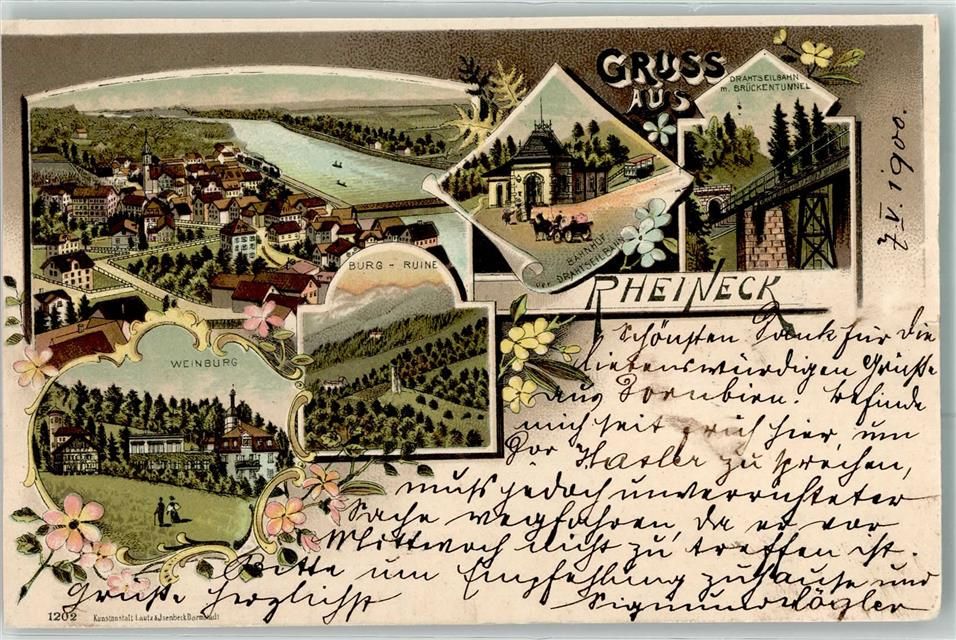 GRUSS
AUS
DRAHTSEILBAHN
m. BRÜCKENTUNNEL
BAHNHOF
der DRAHTSEILBAHN
RHEINECK
BURG - RUINE
WEINBURG
7/V. 1900.
Schönsten Dank für die
liebenswürdigen Grüße
aus Dornbirn. Befinde
mich seit früh hier, um
Hasler zu sprechen,
muß jedoch unverrichteter
Sache wegfahren, da er vor
Mittwoch nicht zu treffen ist.
Bitte um Empfehlung zuhause und
Grüße herzlichst
Sigmund
1202 Kunstanstalt Lautz & Jsenbeck Darmstadt